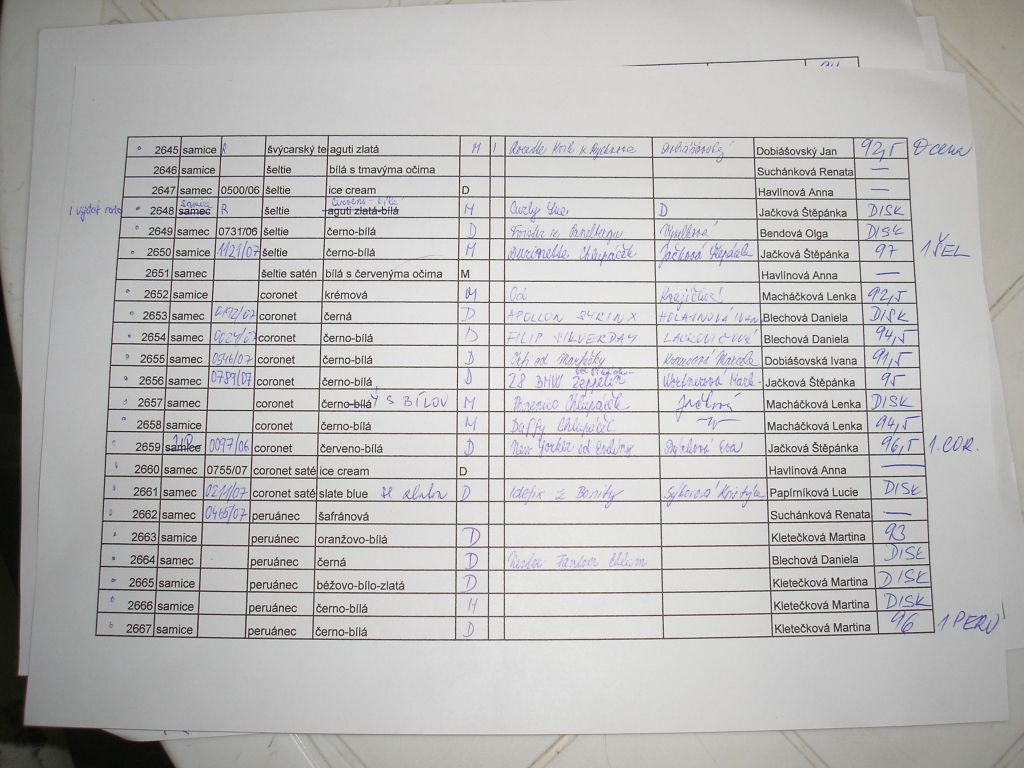 2645 samice R švýcarský te aguti zlatá M 1 Dobiášovský Jan 92,5 Ocenu
2646 samice šeltie bílá s tmavýma očima Suchánková Renata —
2647 samec 0500/06 šeltie ice cream D Havlínová Anna —
samice červeno-bílá
2648 samec R šeltie aguti zlatá-bílá M Curly Sue D Jačková Štěpánka DISK
2649 samec 0731/06 šeltie černo-bílá D Bendová Olga DISK
2650 samice 1121/07 šeltie černo-bílá M Chlupáček Jačková Štěpánka Jačková Štěpánka 97 1 ŠEL
2651 samec šeltie satén bílá s červenýma očima M Havlínová Anna —
2652 samice coronet krémová M Od Krajíčků Macháčková Lenka 92,5
2653 samec 0192/07 coronet černá D APOLLON SYRINX Blechová Daniela DISK
2654 samec 0024/07 coronet černo-bílá D FILIP SILVERDAY Blechová Daniela 94,5
2655 samice 0546/07 coronet černo-bílá D od Markétky Marcela Dobiášovská Ivana 91,5
2656 samice 0789/07 coronet černo-bílá D 28 BMW Zeppelin Jačková Štěpánka 95
2657 samec coronet černo-bílá Ý S BÍLOU M Chlupáček Macháčková Lenka DISK
2658 samice coronet černo-bílá M Daffy Chlupáček Macháčková Lenka 94,5
2659 samice 0097/06 coronet červeno-bílá D New Yorker od Evelíny Eva Jačková Štěpánka 96,5 1. COR.
2660 samec 0755/07 coronet saté ice cream D Havlínová Anna —
2661 samec 0211/07 coronet saté slate blue D Idefix z Bonity Sýkorová Kristýna Papírníková Lucie DISK
2662 samec 0465/07 peruánec šafránová Suchánková Renata —
2663 samice peruánec oranžovo-bílá D Kletečková Martina 93
2664 samec peruánec černá D Fantom Blechová Daniela DISK
2665 samice peruánec béžovo-bílo-zlatá D Kletečková Martina DISK
2666 samice peruánec černo-bílá M Kletečková Martina DISK
2667 samice peruánec černo-bílá D Kletečková Martina 96 1 PERU